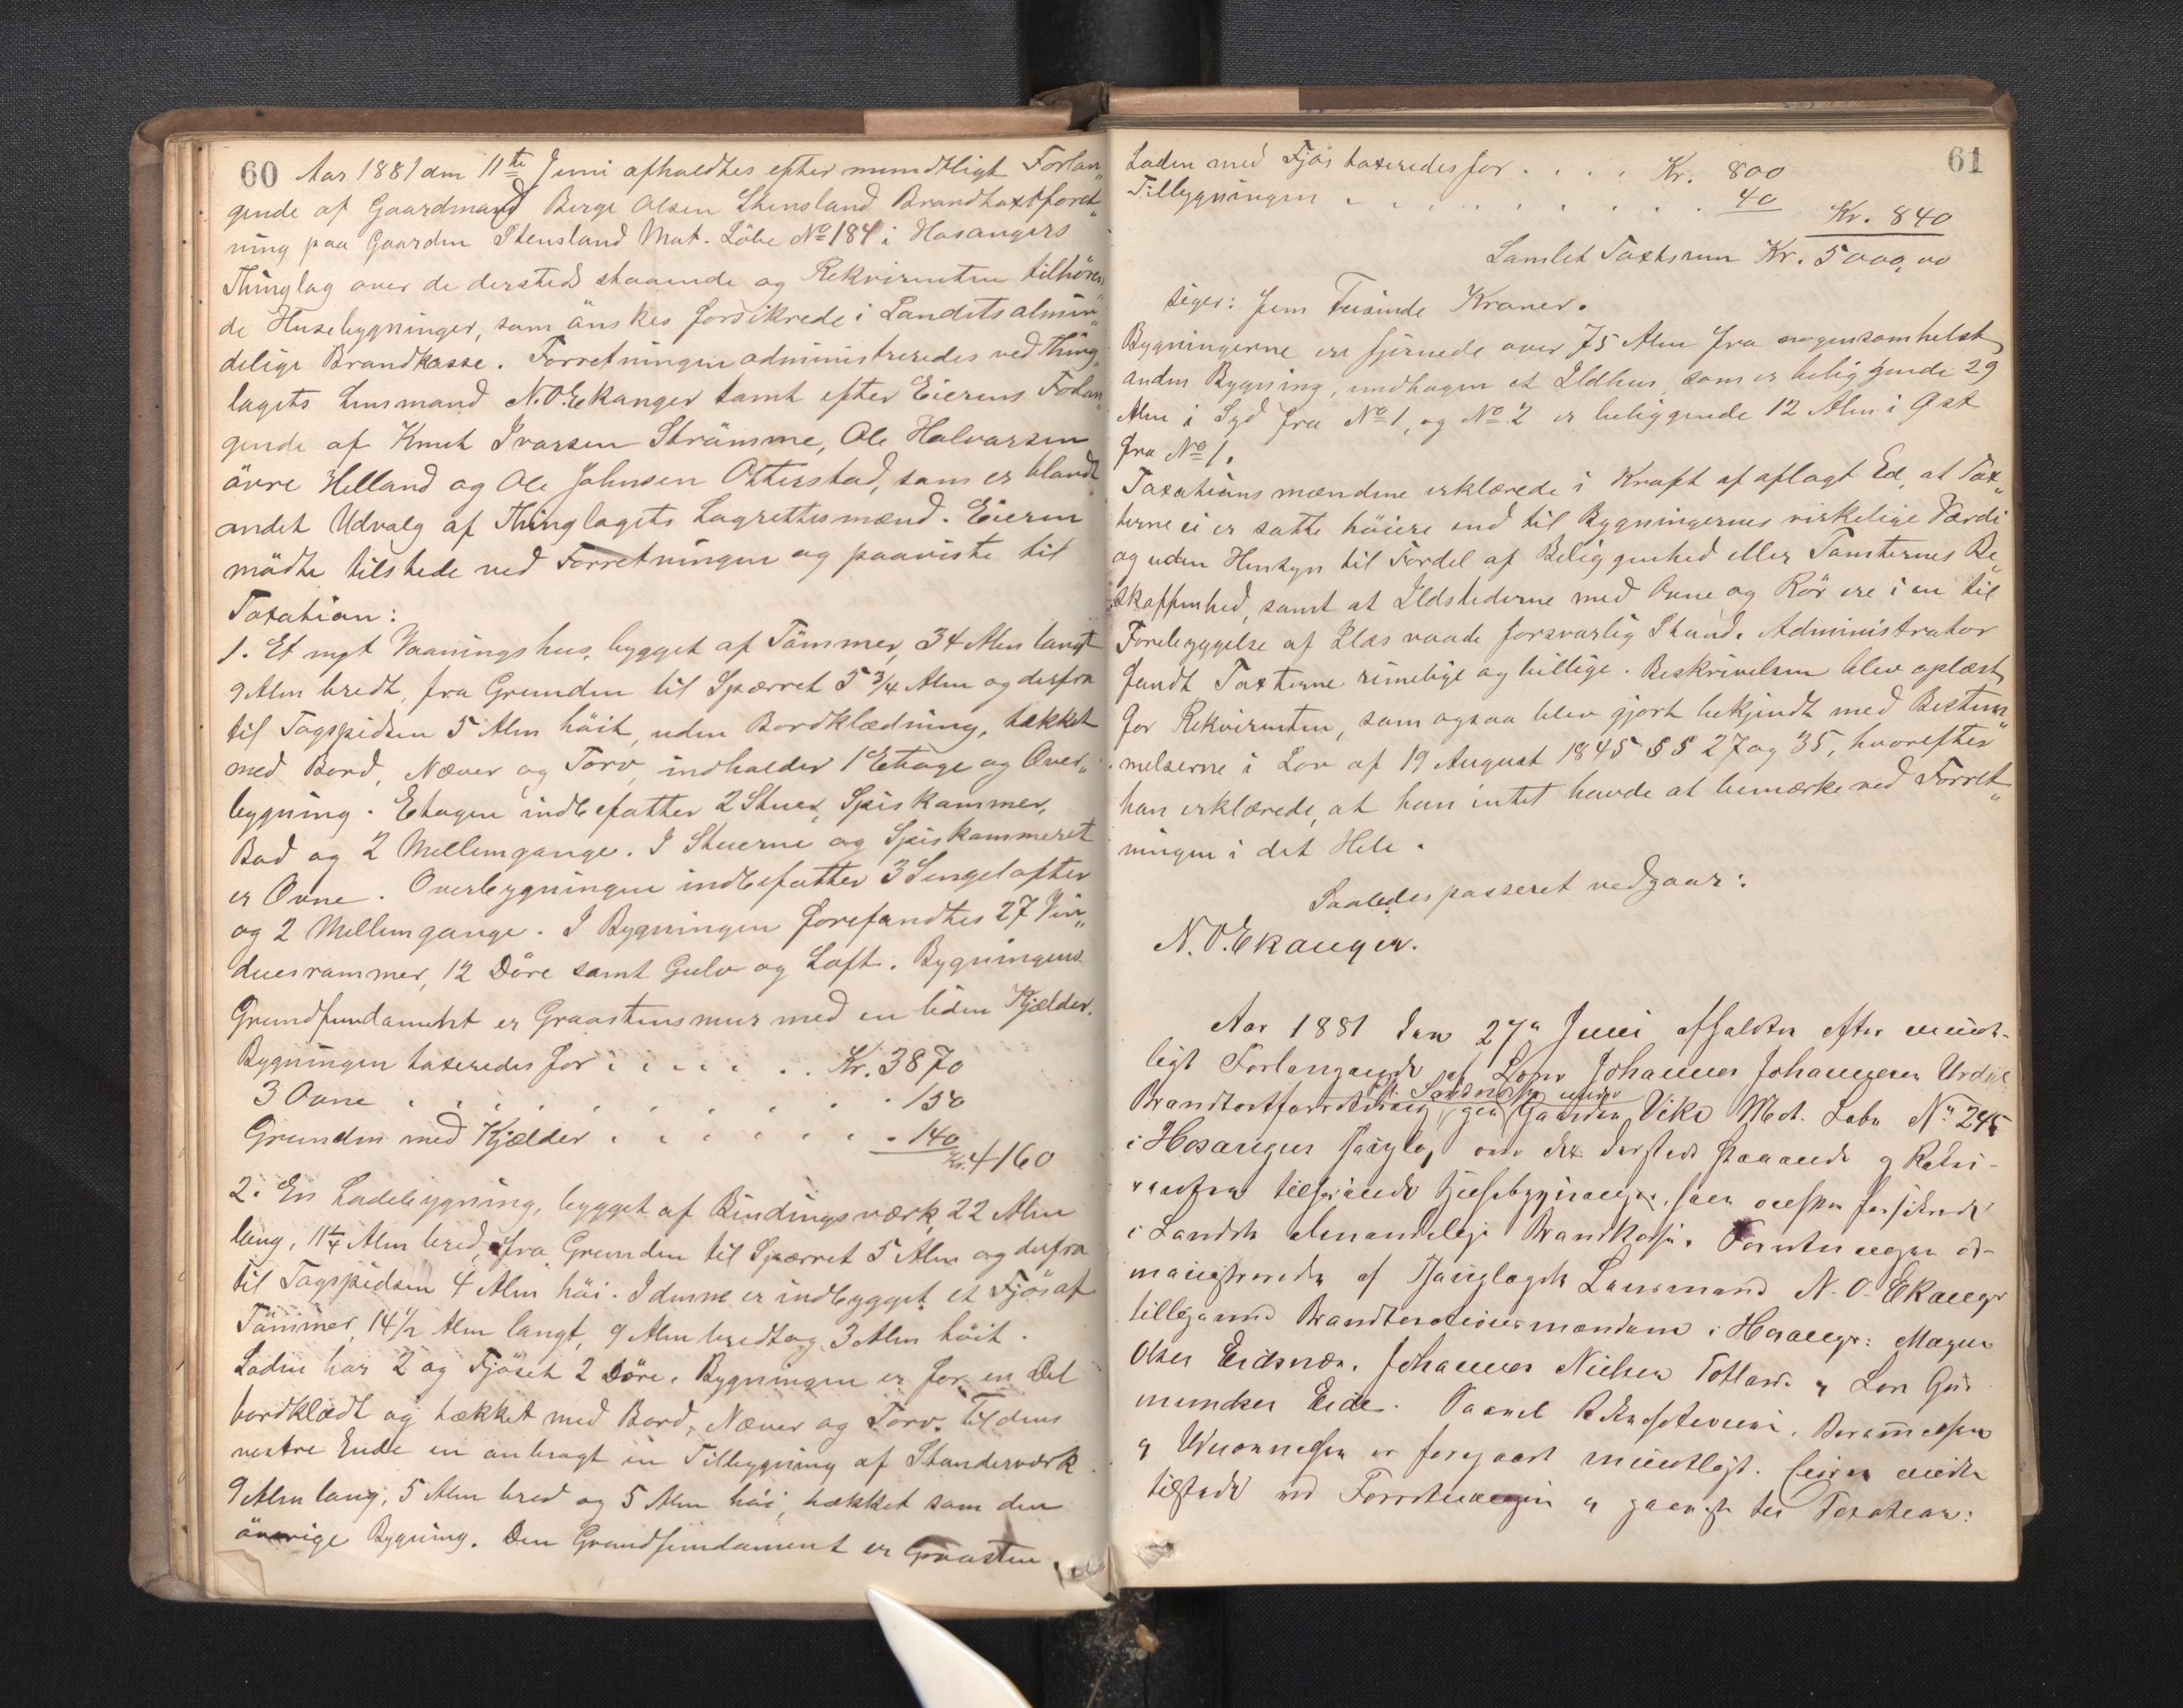 60 Aar 1881 den 11te Juni afholdtes efter mundtligt Forlan„
gende af Gaardmand Berge Olsen Stensland Brandtaxtforret„
ning paa Gaarden Stensland Mat. Löbe No 184 i Hosangers
Thinglag over de dersteds staaende og Rekvirenten tilhören„
de Husebygninger, som önskes forsikrede i Landets almin„
delige Brandkasse. Forretningen administreredes ved Thing„
lagets Lensmand N.O. Ekanger samt efter Eierens Forlan„
gende af Knut Ivarsen Strömme, Ole Halvorsen
övre Helland og Ole Johnsen Otterstad, som er blandt
andet Udvalg af Thinglagets Lagrettesmænd. Eieren
mödte tilstede ved Forretningen og paaviste til
Taxation:
1. Et nyt Vaaningshus, bygget af Tömmer, 34 Alen langt
9 Alen bredt, fra Grunden til Spærret 5 3/4 Alen og derfra
til Tagspidsen 5 Alen höit, uden Bordklædning, tækket
med Bord, Næver og Torv, indholder 1 Etage og Over„
bygning. Etagen indbefatter 2 Stuer, Spiskammer,
Bod og 2 Mellemgange. I Stuerne og Spiskammeret
er Ovne. Overbygningen indbefatter 3 Sengelofter
og 2 Mellemgange. I Bygningen forefandtes 27 Vin„
duesrammer, 12 Döre samt Gulv og Loft. Bygningens
Grundfundament er Graastensmur med en liden Kjælder.
Bygningen taxeredes for . . . . . . Kr. 3870
3 Ovne . . . . . . . . . . 150
Grunden med Kjælder . . . . . . . 140
Kr. 4160
2. En Ladebygning, bygget af Bindingsværk, 22 Alen
lang, 11 1/4 Alen bred, fra Grunden til Spærret 5 Alen og derfra
til Tagspidsen 4 Alen höi. I denne er indbygget et Fjös af
Tömmer, 14 1/2 Alen langt, 9 Alen bredt og 3 Alen höit.
Laden har 2 og Fjöset 2 Döre. Bygningen er for en Del
bordklædt og tækket med Bord, Næver og Torv. Til dens
vestre Ende en anbragt en Tilbygning af Standerværk
9 Alen lang, 5 Alen bred og 5 Alen höi, tækket som den
övrige Bygning. Den Grundfundament er Graasten.
61
Laden med Fjös taxeredes for . . . . Kr. 800
Tilbygningen . . . . . . . . . 40
Kr. 840
Samlet Taxtsum Kr. 5000,00
siger: Fem Tusinde Kroner.
Bygningerne ere fjernede over 75 Alen fra nogensomhelst
anden Bygning, undtagen et Ildhus, som er beliggende 29
Alen i Syd fra No 1, og No 2 er beliggende 12 Alen i Öst
fra No 1.
Taxationsmændene erklærede i Kraft af aflagt Ed, at Tax„
terne ei er satte höiere end til Bygningernes virkelige Værdi
og uden Hensyn til Fordel af Beliggenhed eller Tomternes Be„
skaffenhed, samt at Ildstederne med Ovne og Rör ere i en til
Forebyggelse af Ildsvaade forsvarlig Stand. Administrator
fandt Taxterne rimelige og billige. Beskrivelsen blev oplæst
for Rekvirenten, som ogsaa blev gjort bekjendt med Bestem„
melserne i Lov af 19 August 1845 §§ 27 og 35, hvorefter
han erklærede, at han intet havde at bemærke ved Forret„
ningen i det Hele.
Saaledes passeret vedgaar:
N. O. Ekanger.
Aar 1881 den 27de Juni afholdtes efter mundt-
ligt Forlangende af Johannes Johannesen Urdal
Brandtaxtforretning paa under Gaarden Vike Mat. Löbe No 245
i Hosanger Thinglag over de dersteds staaende og Rekvi-
renten tilhörende Husebygninger, som önskes forsikrede
i Landets almindelige Brandkasse. Forretningen ad-
ministreredes af Thinglagets Lensmand N. O. Ekanger
tilligemed Brandtaxationsmændene i Hosanger: Magne
Olsen Eidsnes, Johannes Nielsen Totland og Lars Gud-
mundsen Eide.
og er foregaaet mundtligt. Eieren mödte
tilstede ved Forretningen og paaviste til Taxation: